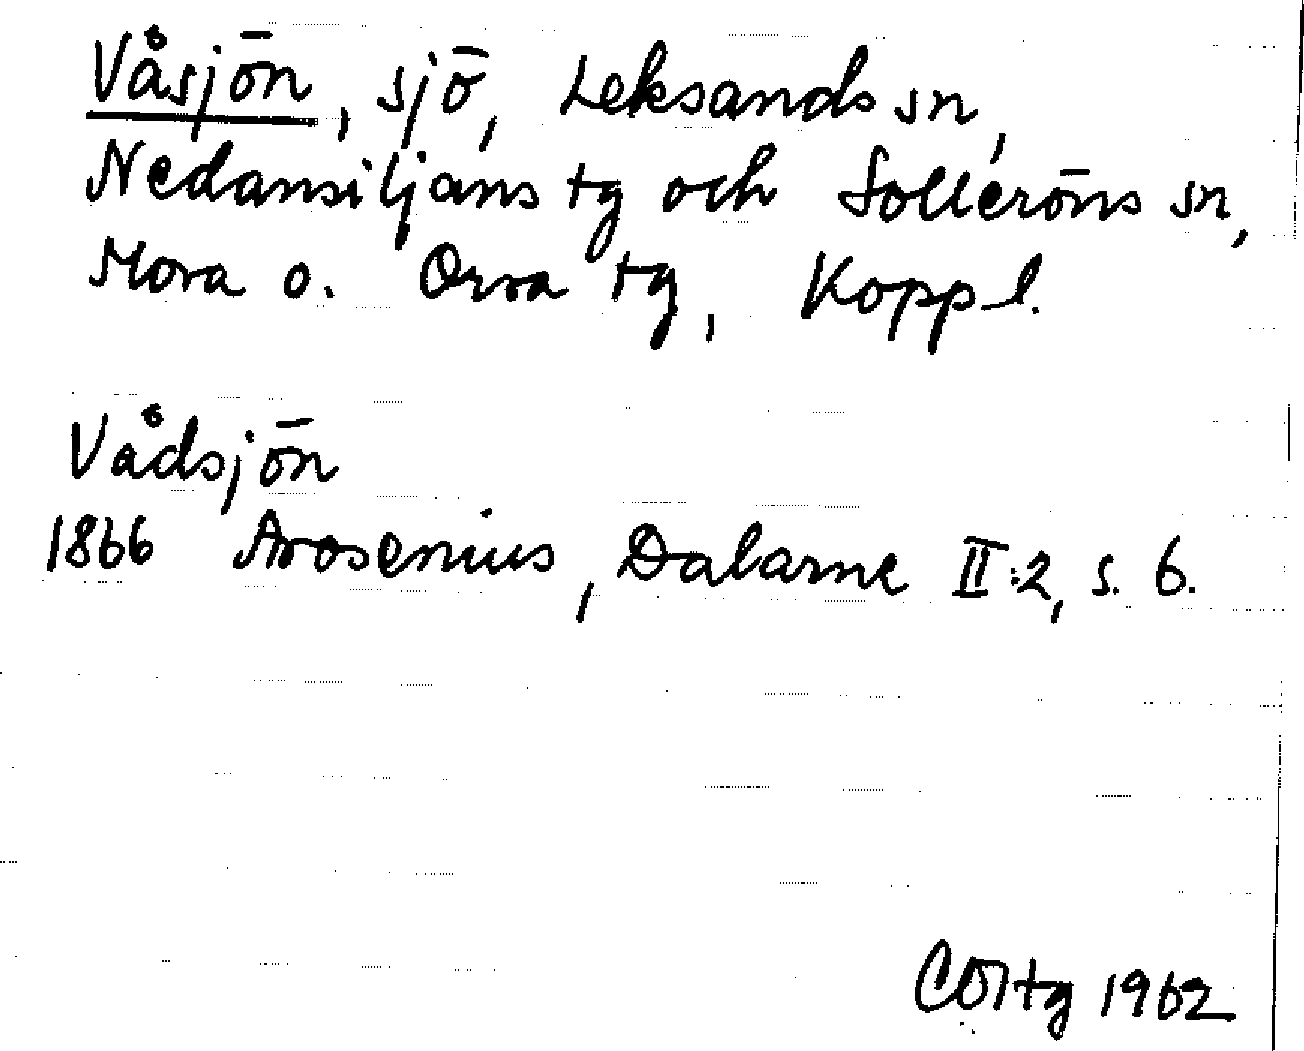 Våsjön, sjö, Leksands sn,
Nedansiljans tg och Solleröns sn,
Mora o. Orsa tg, Koppl.
Vådsjön
1866 Arosenius, Dalarne II:2, s. 6.
1962